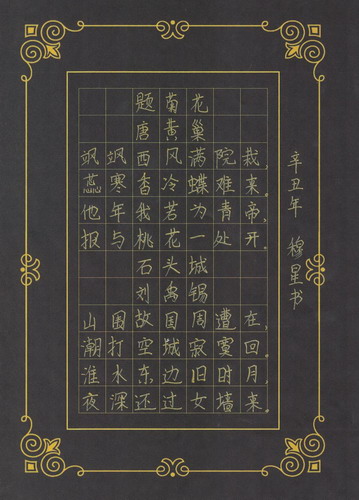 题菊花
唐黄巢
飒飒西风满院栽，
蕊寒香冷蝶难来。
他年我若为青帝，
报与桃花一处开。
石头城
刘禹锡
山围故国周遭在，
潮打空城寂寞回。
淮水东边旧时月，
夜深还过女墙来。
辛丑年 穆星书